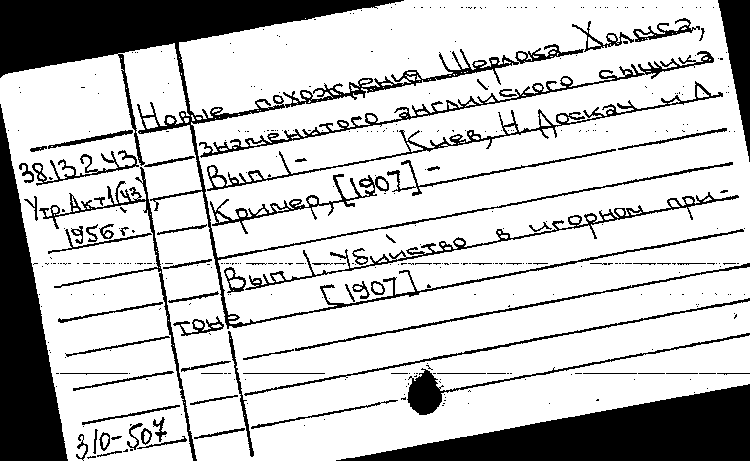 Новые похождения Шерлока Холмса,
знаменитого английского сыщика.
38.13.2.43.
Вып. 1- Киев, Н. Доскач и Л.
Утр. Акт 1(43),
1956 г.
Кример, [1907] -
Вып. 1. Убийство в игорном при-
тоне. [1907].
310-507